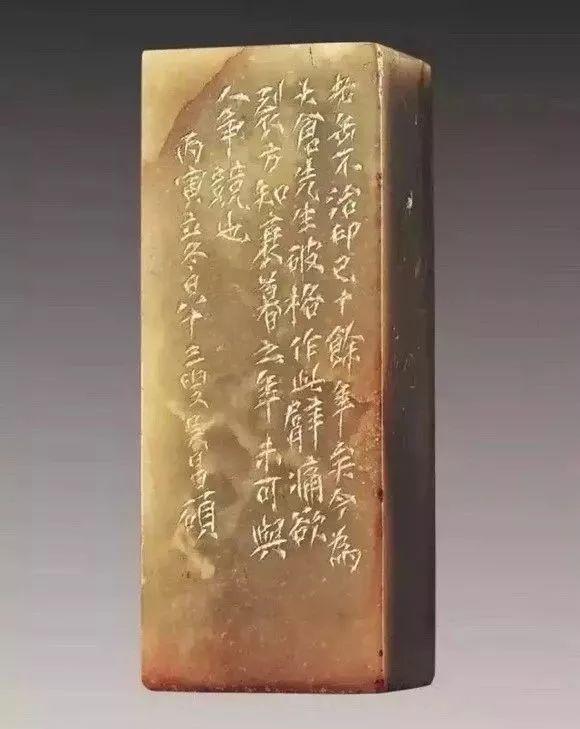 老缶不治印已十餘年矣今為
大倉先生破格作此臂痛欲
裂方知衰暮之年未可與
人爭競也
丙寅立冬日八十三叟吳昌碩